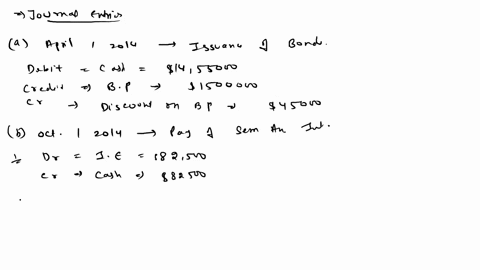 → Journal Entries
(a) April 1 2014 → Issuance of Bonds.
Debit = Cash = $14,55000
Credit → B.P → $1500000
Cr → Discount on BP → $45000
(b) Oct. 1 2014 → Pay of Sem An Int.
Dr = I.E = $82,500
Cr → Cash → $82500